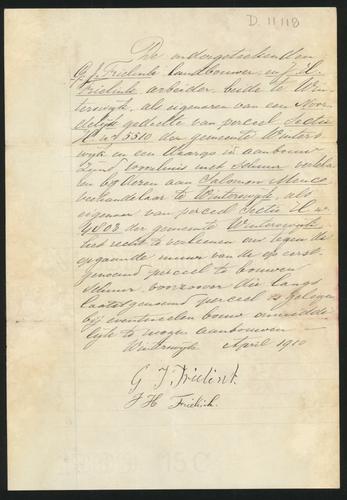 D. 11/18
De ondergeteekenden
G. J. Frielink landbouwer, en J. H.
Frielink arbeider beide te Win-
terswijk, als eigenaren van een Noor-
delijk gedeelte van perceel Sectie
K. no 5510 der gemeente Winters-
wijk en een daarop in aanbouw
zijnd woonhuis met schuur verkla-
ren bij dezen aan Salomon
veehandelaar te Winterswijk, als
eigenaar van perceel Sectie K no
der gemeente Winterswijk
het recht te verleenen om tegen de
opgaande muur van de op eerst-
genoemd perceel te bouwen
schuur, voorzoover die langs
laatstgenoemd perceel is gelegen
bij eventueelen bouw onmidde-
lijk te mogen aanbouwen
Winterswijk April 1910
G J Frielink
J H Frielink